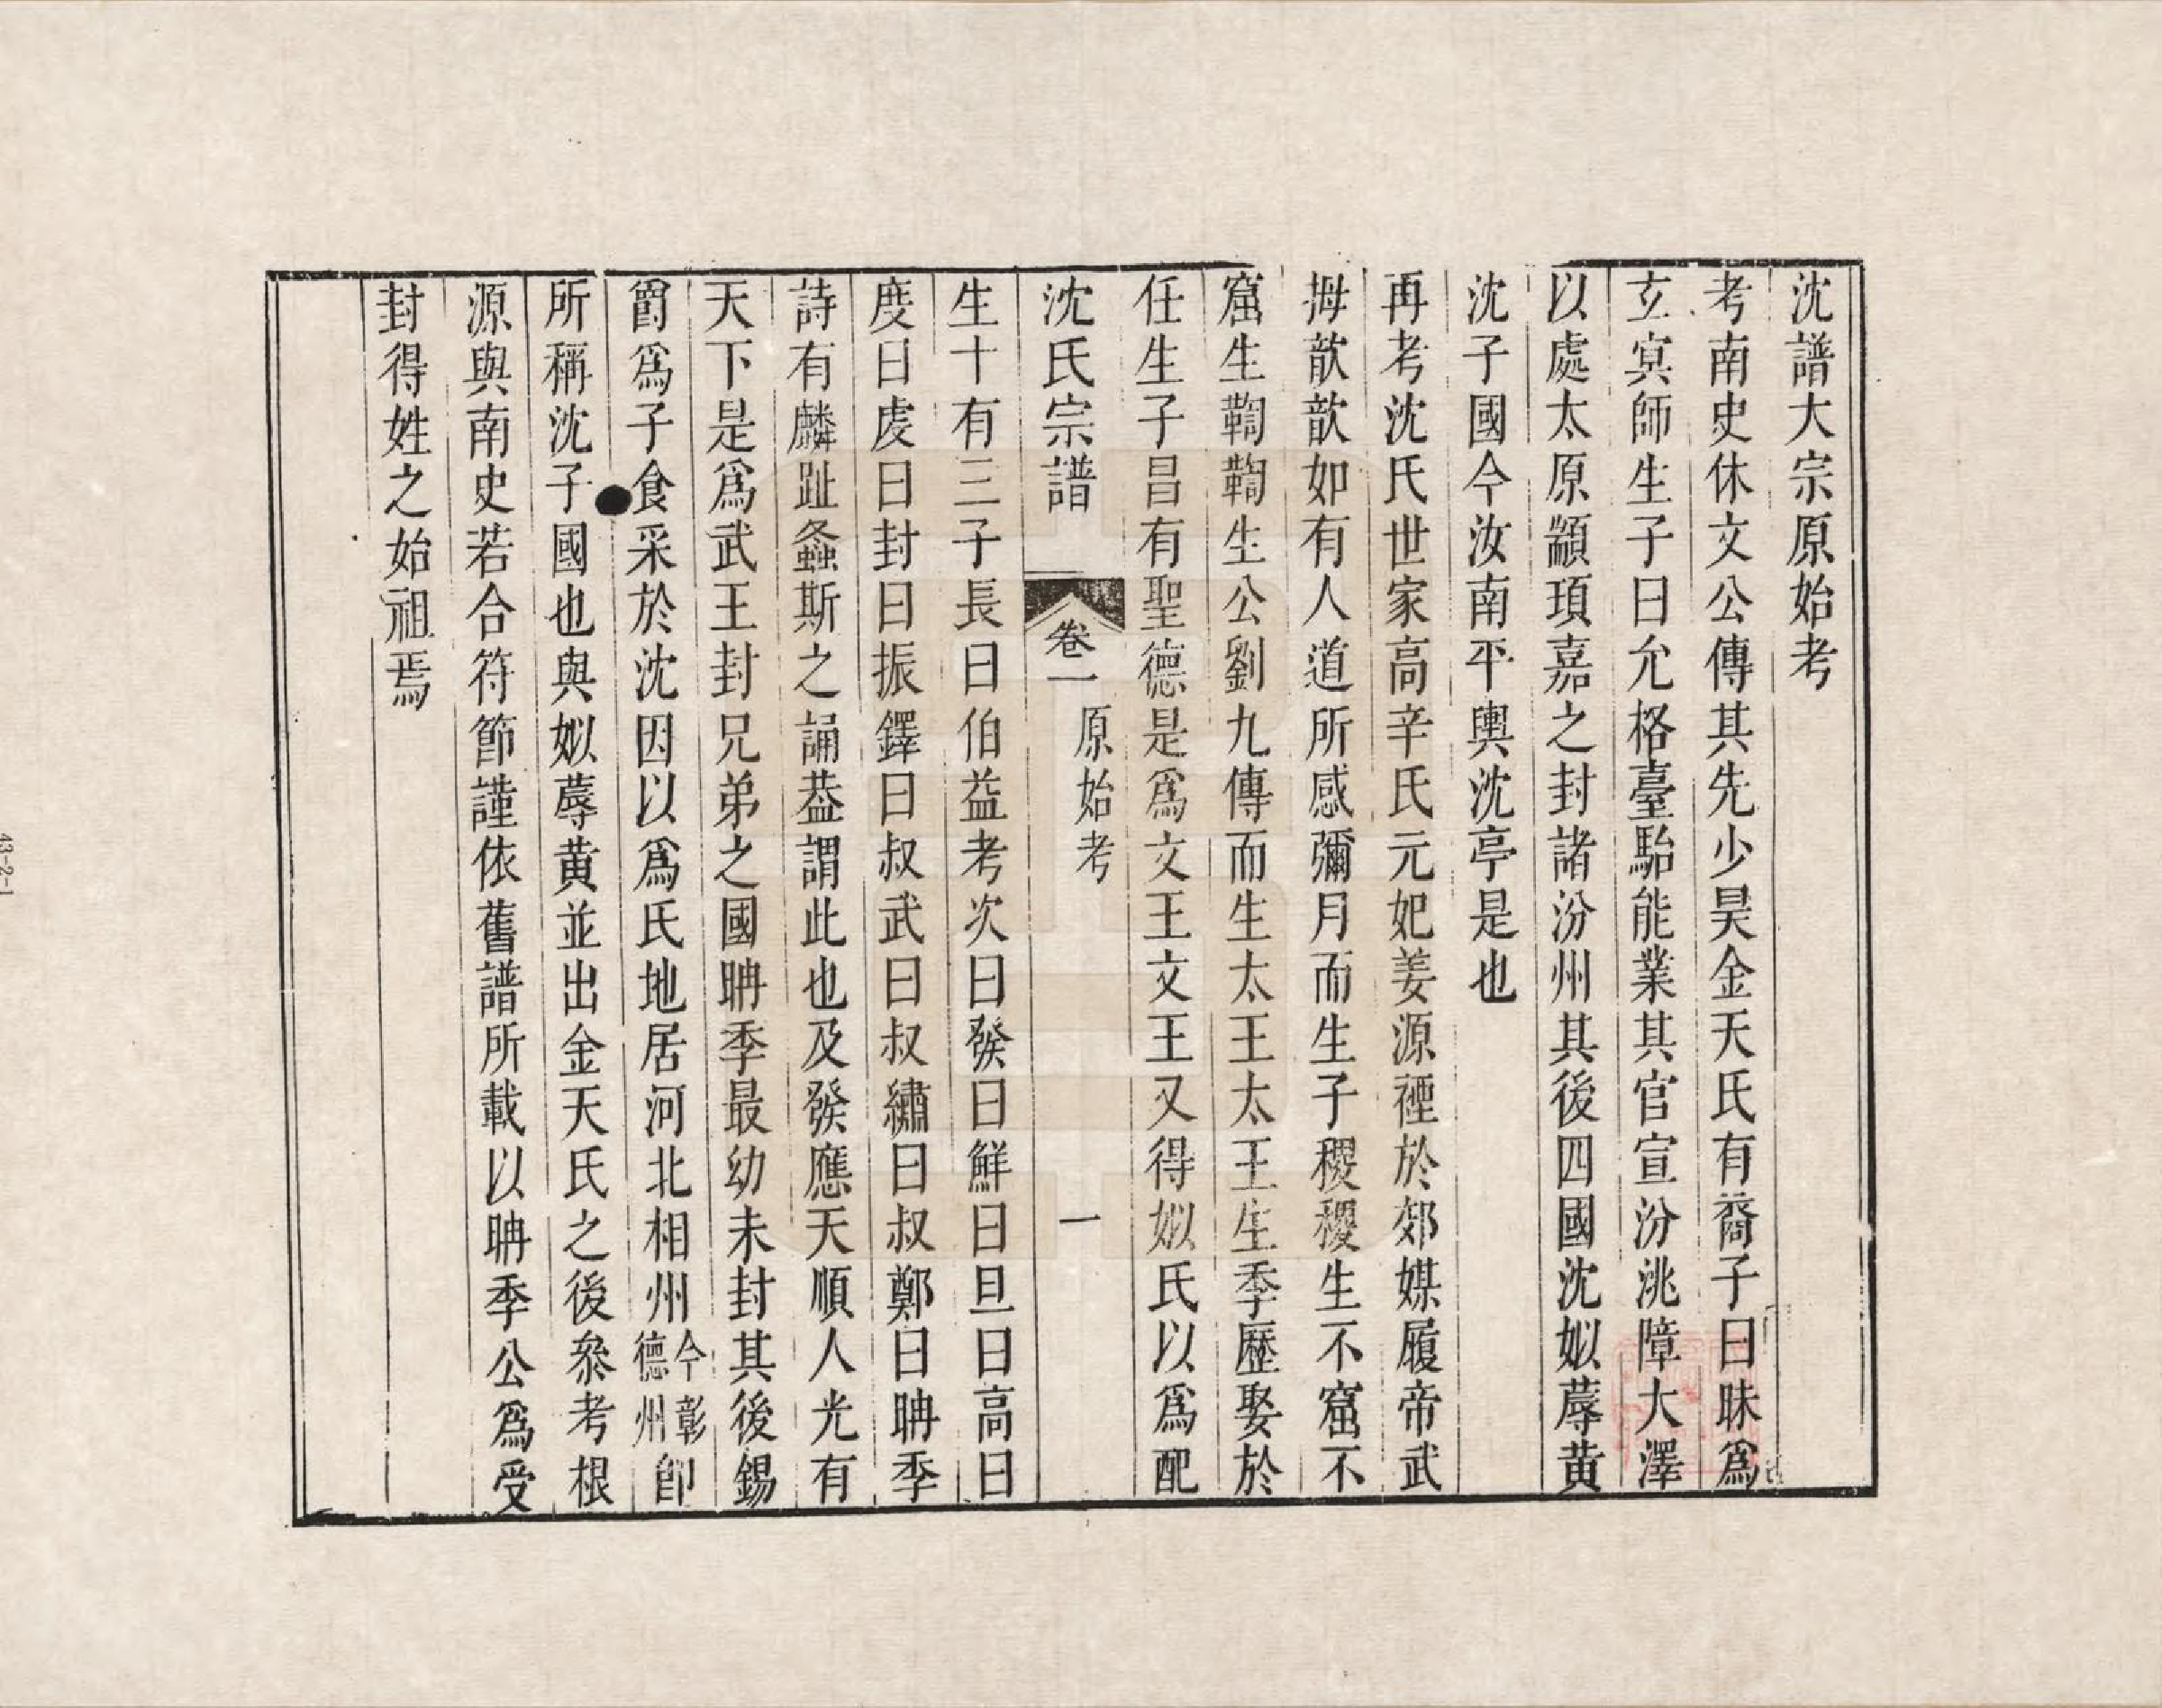 沈譜大宗原始考
考南史休文公傳其先少昊金天氏有裔子曰昧爲
玄冥師生子曰允格臺駘能業其官宣汾洮障大澤
以處太原顓頊嘉之封諸汾州其後四國沈姒蓐黄
沈子國今汝南平輿沈亭是也
再考沈氏世家高辛氏元妃姜源禋於郊媒履帝武
拇歆歆如有人道所感彌月而生子稷稷生不窋不
窋生鞫鞫生公劉九傳而生太王太王生季歷娶於
任生子昌有聖德是爲文王文王又得姒氏以爲配
沈氏宗譜 卷一 原始考 一
生十有三子長曰伯益考次曰發曰鮮曰旦曰高曰
度曰處曰封曰振鐸曰叔武曰叔繡曰叔鄭曰聃季
詩有麟趾螽斯之誦葢謂此也及發應天順人光有
天下是爲武王封兄弟之國聃季最幼未封其後錫
爵爲子食采於沈因以爲氏地居河北相州今彰德州卽
所稱沈子國也與姒蓐黄並出金天氏之後叅考根
源與南史若合符節謹依舊譜所載以聃季公爲受
封得姓之始祖焉
43-2-1